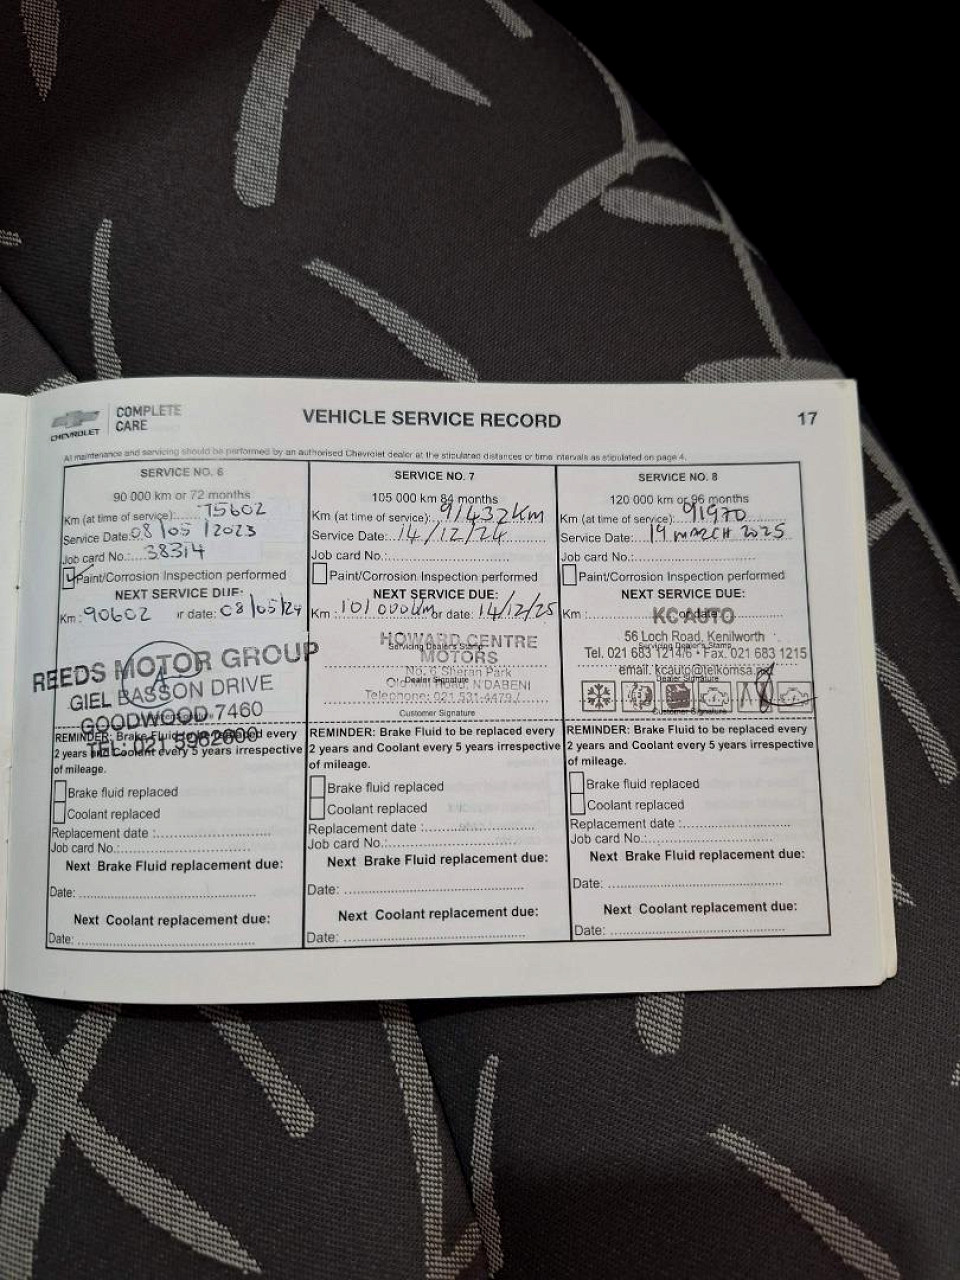 CHEVROLET
COMPLETE
CARE
VEHICLE SERVICE RECORD
17
All maintenance and servicing should be performed by an authorised Chevrolet dealer at the stipulated distances or time intervals as stipulated on page 4.
SERVICE NO. 6
90 000 km or 72 months
Km (at time of service):......75602
Service Date:08/05/2023
Job card No.:...38314
Paint/Corrosion Inspection performed
NEXT SERVICE DUE:
Km :90602 or date: 08/05/24
REEDS MOTOR GROUP
GIEL BASSON DRIVE
GOODWOOD 7460
TEL: 021 5962600
REMINDER: Brake Fluid to be replaced every
2 years and Coolant every 5 years irrespective
of mileage.
Brake fluid replaced
Coolant replaced
Replacement date :..............................
Job card No.:..............................
Next Brake Fluid replacement due:
Date: ..............................
Next Coolant replacement due:
Date: ..............................
SERVICE NO. 7
105 000 km 84 months
Km (at time of service):.91432Km
Service Date:..14/12/24
Job card No.:..............................
Paint/Corrosion Inspection performed
NEXT SERVICE DUE:
Km :101000km or date: 14/12/25
HOWARD CENTRE
Servicing Dealer's Stamp
MOTORS
No. 6 Sheran Park
Dealer Signature
N'DABENI
Telephone: 021 531-4479/
Customer Signature
REMINDER: Brake Fluid to be replaced every
2 years and Coolant every 5 years irrespective
of mileage.
Brake fluid replaced
Coolant replaced
Replacement date :..............................
Job card No.:..............................
Next Brake Fluid replacement due:
Date: ..............................
Next Coolant replacement due:
Date: ..............................
SERVICE NO. 8
120 000 km or 96 months
Km (at time of service):.91970
Service Date:...19 MARCH 2025
Job card No.:..............................
Paint/Corrosion Inspection performed
NEXT SERVICE DUE:
Km : or date:
KC AUTO
56 Loch Road, Kenilworth
Servicing Dealer's Stamp
Tel. 021 683 1214/6 • Fax. 021 683 1215
email. kcauto@telkomsa.
Dealer Signature
Customer Signature
REMINDER: Brake Fluid to be replaced every
2 years and Coolant every 5 years irrespective
of mileage.
Brake fluid replaced
Coolant replaced
Replacement date :..............................
Job card No.:..............................
Next Brake Fluid replacement due:
Date: ..............................
Next Coolant replacement due:
Date: ..............................